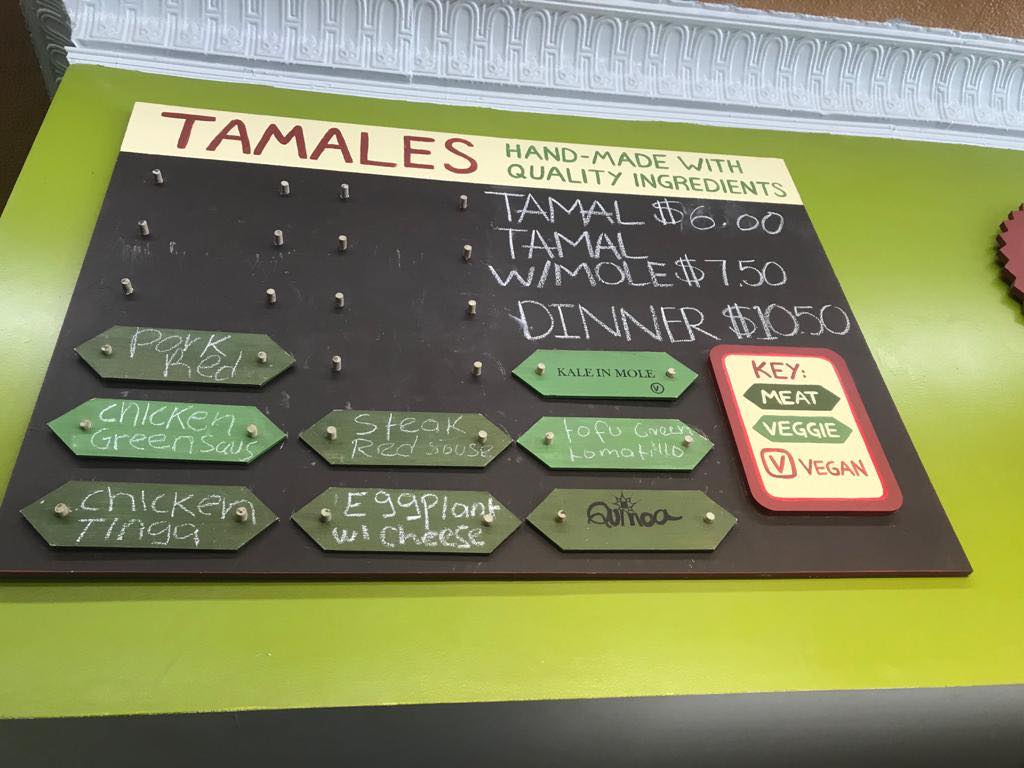 TAMALES
HAND-MADE WITH
QUALITY INGREDIENTS
TAMAL $6.00
TAMAL
W/MOLE $7.50
DINNER $10.50
Pork
Red
Chicken
Green saus
Chicken
Tinga
Steak
Red souse
Eggplant
w/ Cheese
KALE IN MOLE
V
tofu Green
tomatillo
Quinoa
KEY:
MEAT
VEGGIE
V VEGAN